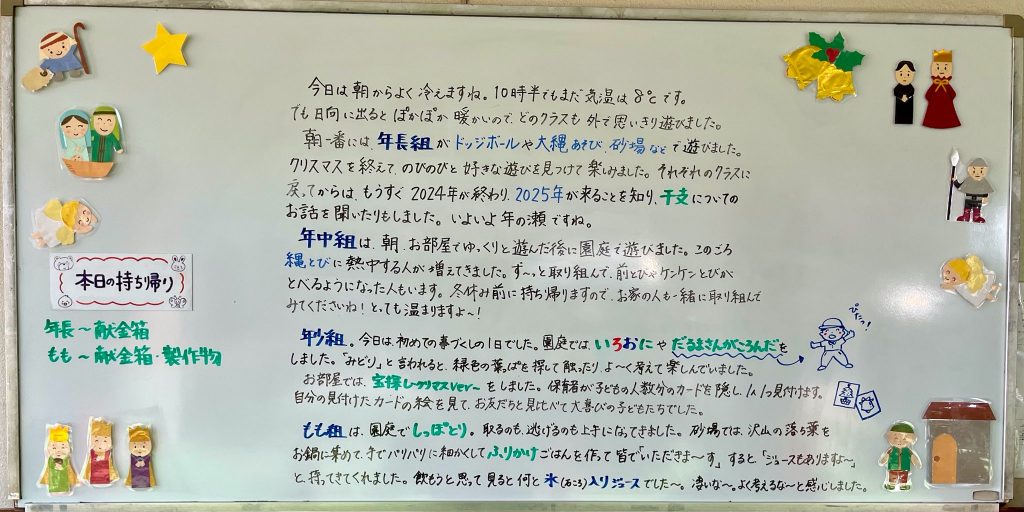 今日は朝からよく冷えますね。10時半でもまだ気温は8℃です。
でも日向に出るとぽかぽか暖かいので、どのクラスも外で思いきり遊びました。
朝一番には、年長組がドッジボールや大縄あそび、砂場などで遊びました。
クリスマスを終えて、のびのびと好きな遊びを見つけて楽しみました。それぞれのクラスに
戻ってからは、もうすぐ2024年が終わり、2025年が来ることを知り、干支についての
お話を聞いたりもしました。いよいよ年の瀬ですね。
年中組は、朝、お部屋でゆっくりと遊んだ後に園庭で遊びました。このごろ
縄とびに熱中する人が増えてきました。ず〜っと取り組んで、前とびやケンケンとびが
とべるようになった人もいます。冬休み前に持ち帰りますので、お家の人も一緒に取り組んで
みてくださいね!とっても温まりますよ〜!
年少組。今日は初めての事づくしの1日でした。園庭では、いろおにやだるまさんがころんだを
しました。「みどり」と言われると、緑色の葉っぱを探して触ったり、よ〜く考えて楽しんでいました。
お部屋では、宝探しクリスマスver〜をしました。保育者が子どもの人数分のカードを隠し、1人1つ見付けます。
自分の見付けたカードの絵を見て、お友だちと見比べて大喜びの子どもたちでした。
もも組は、園庭でしっぽとり。取るのも、逃げるのも上手になってきました。砂場では、沢山の落ち葉を
お鍋に集めて、手でバリバリに細かくしてふりかけごはんを作って皆で「いただきま〜す」すると「ジュースもありますよ〜」
と、持ってきてくれました。飲もうと思って見ると何と氷(石ころ)入りジュースでした〜。凄いな〜。よく考えるな〜と感心しました。
本日の持ち帰り
年長〜献金箱
もも〜献金箱・製作物
ぴたっ!